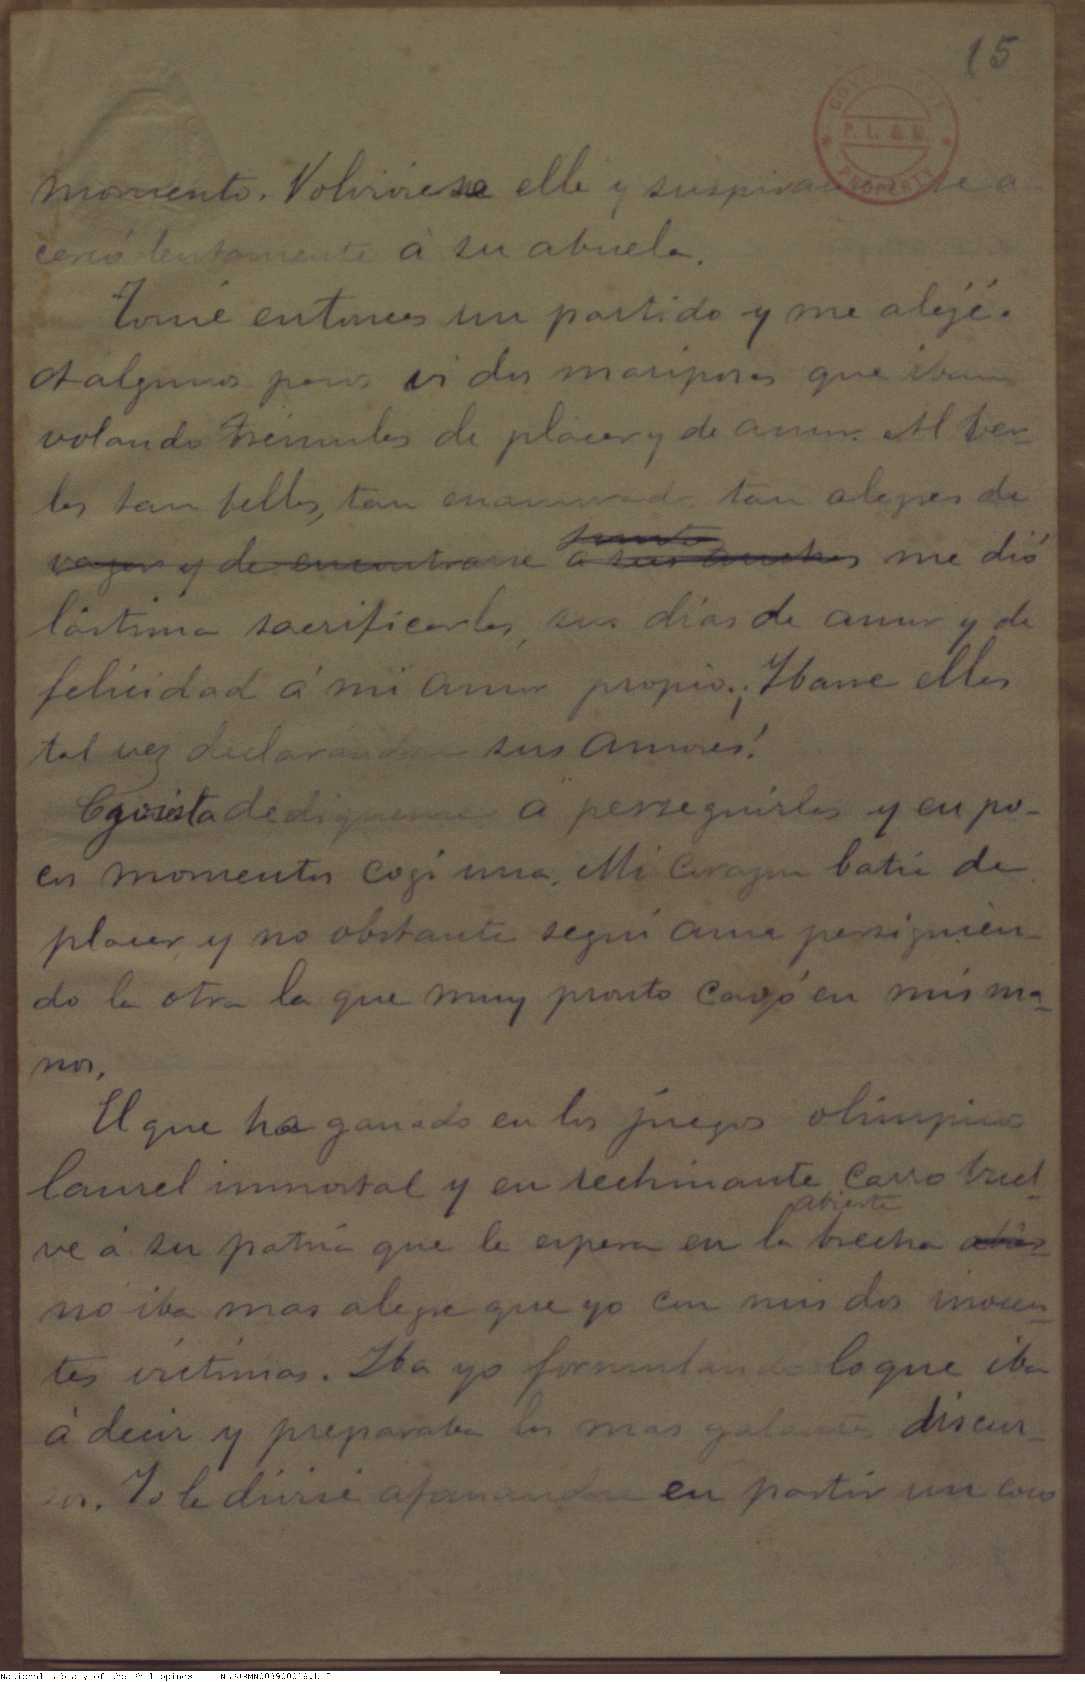 15
GOVERNMENT
P. L. & M.
PROPERTY
momento. Volvióse ella y suspirando se a
cercó lentamente á su abuela.
Tomé entonces un partido y me alejé.
A algunos pasos vi dos mariposas que iban
volando trémulas de placer y de amor. Al ver-
las tan bellas, tan enamoradas tan alegres de
junto
vagar y de encontrarse á sus anchas me dió
lástima sacrificarlas, sus días de amor y de
felicidad á mi amor propio. ¡Ibanse ellas
tal vez declarandose sus amores!
Egoista dediquéme á perseguirlas y en po-
cos momentos cogí una. Mi corazon batió de
placer, y no obstante seguí aun persiguien-
do la otra la que muy pronto cayó en mis ma-
nos.
El que ha ganado en los juegos olímpicos
laurel immortal y en rechinante carro vuel-
abierta
ve á su patria que le espera en la brecha
no iba mas alegre que yo con mis dos inocen-
tes víctimas. Iba yo formulando lo que iba
á decir y preparaba los mas galantes discur-
sos. Yo la divisé afanandose en partir un coco
National Library of the Philippines